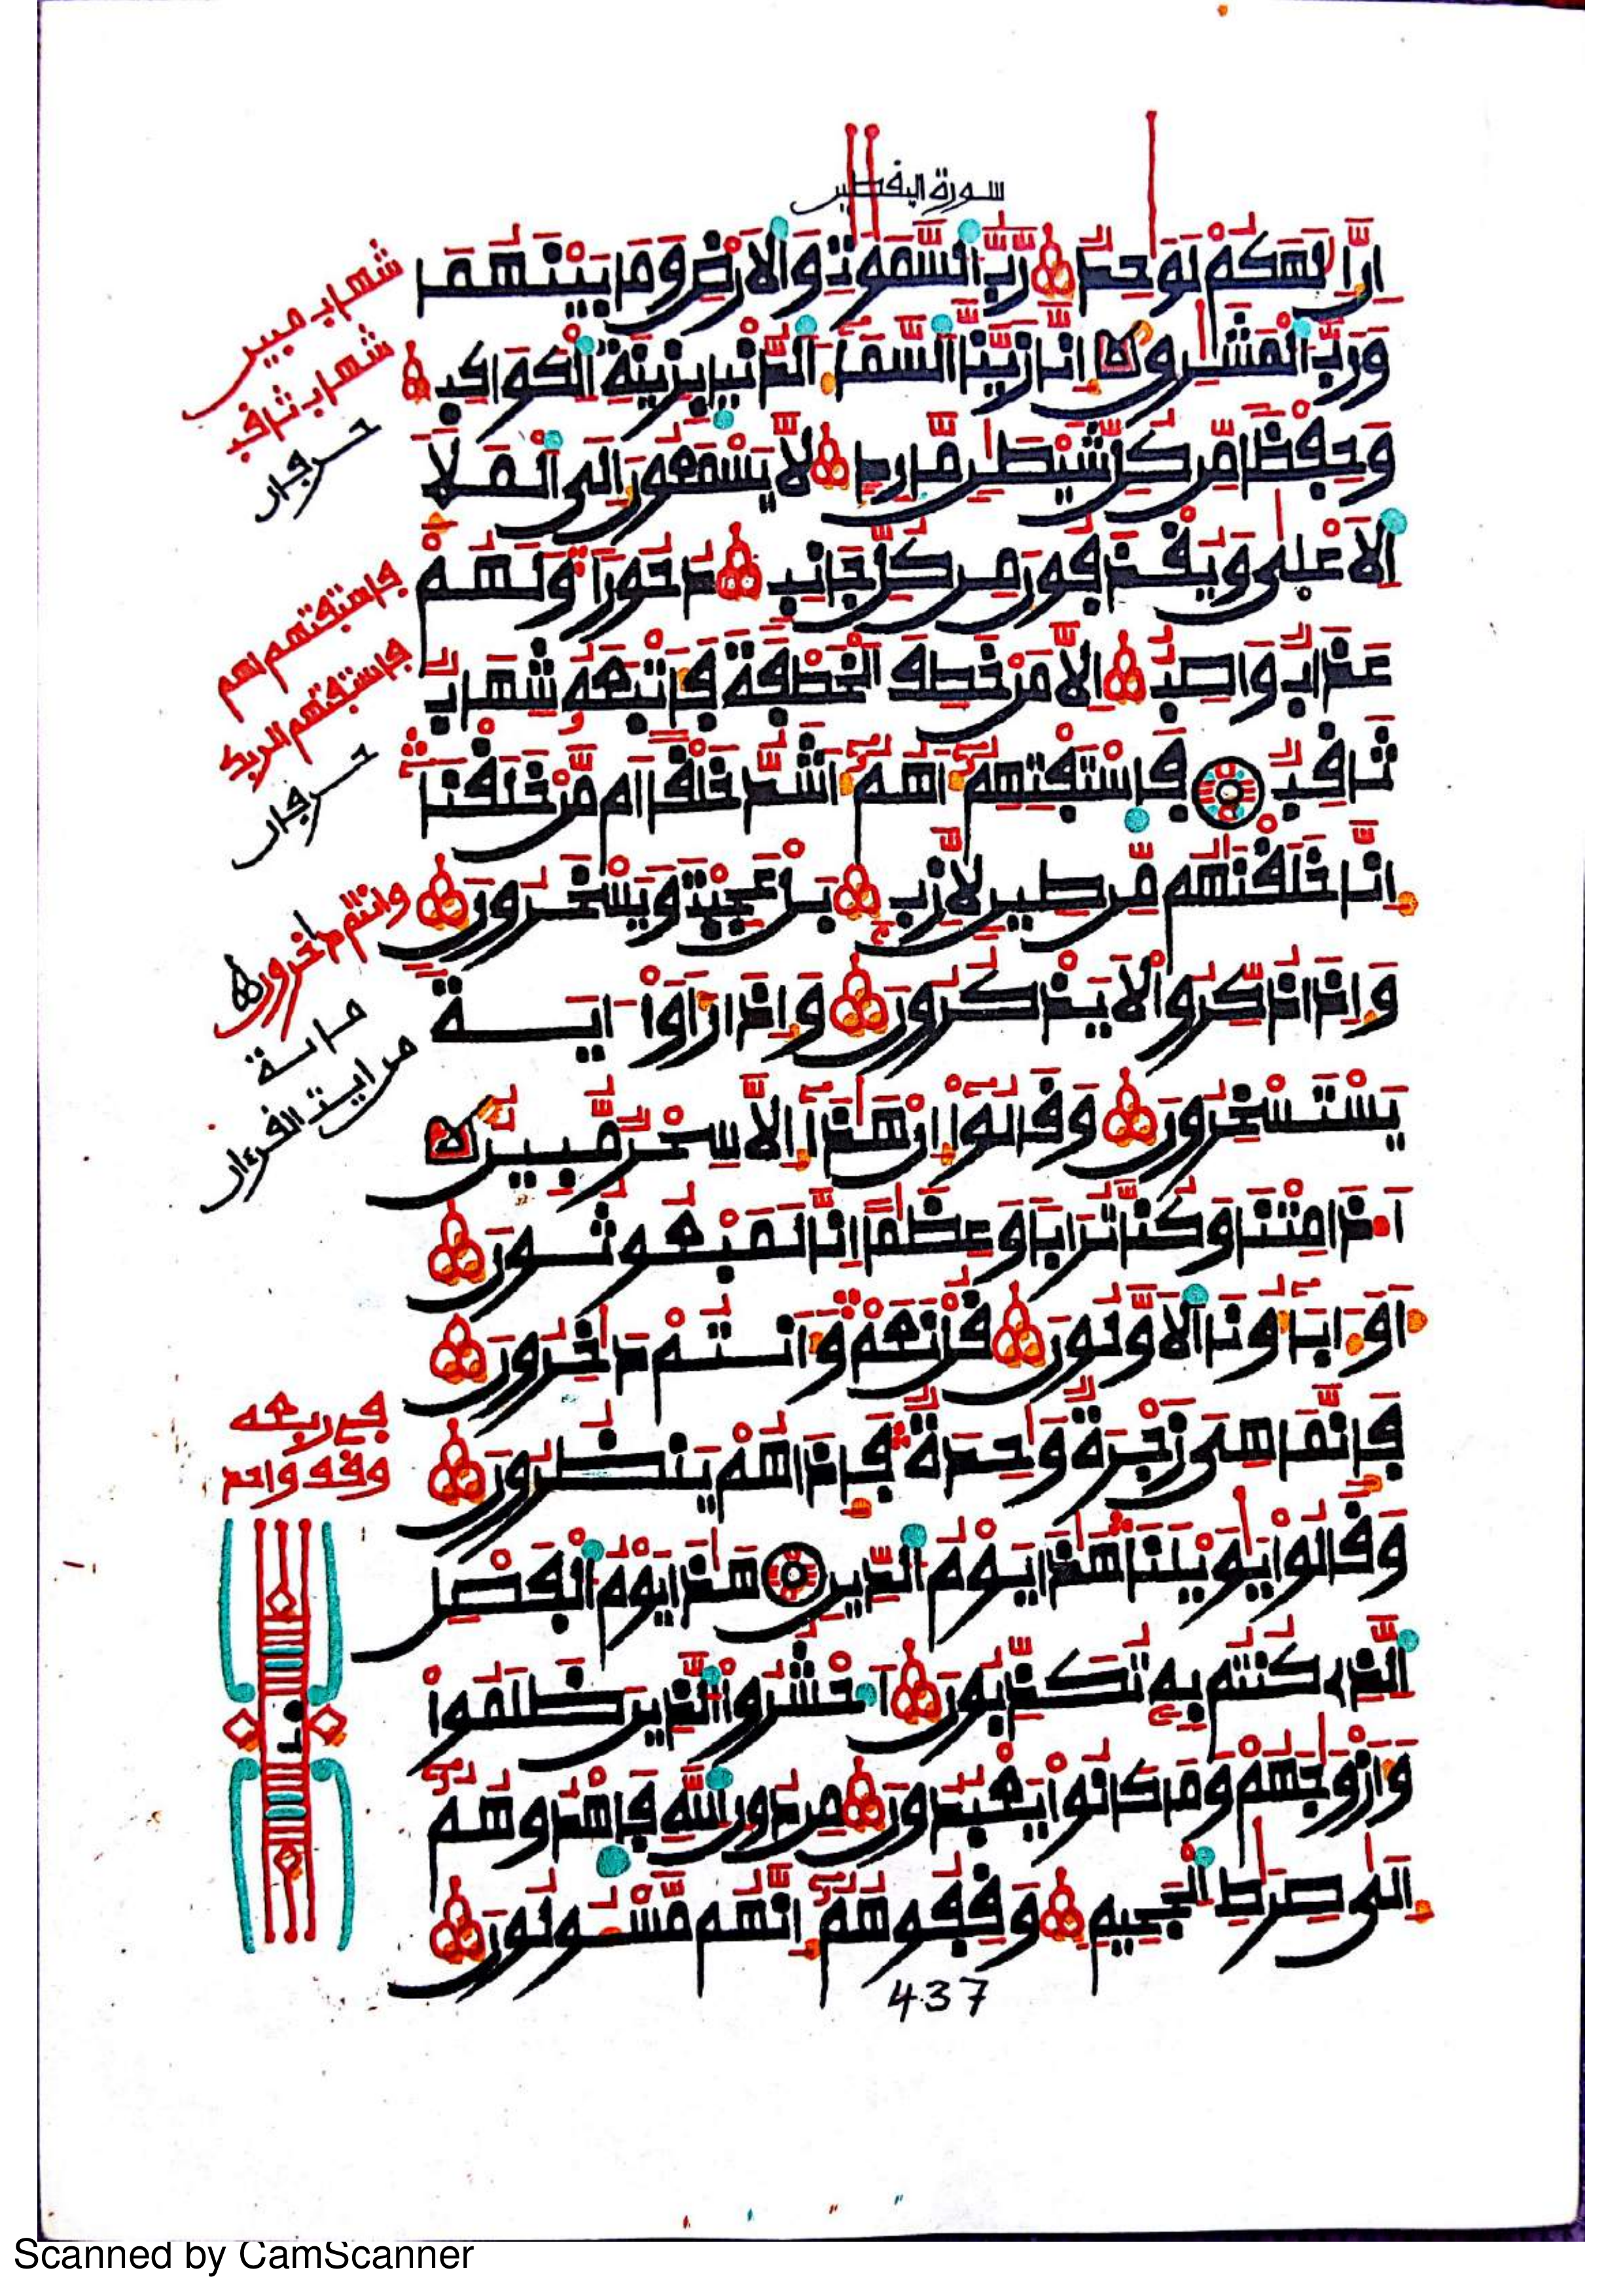 سورة اليفطير
إِنَّ إِلَٰهَكُمْ لَوَٰحِدٌ رَّبُّ السَّمَٰوَٰتِ وَالْأَرْضِ وَمَا بَيْنَهُمَا
وَرَبُّ الْمَشَٰرِقِ إِنَّا زَيَّنَّا السَّمَاءَ الدُّنْيَا بِزِينَةِ الْكَوَاكِبِ
وَحِفْظًا مِّن كُلِّ شَيْطَٰنٍ مَّارِدٍ لَا يَسْمَعُونَ إِلَى الْمَلَإِ
الْأَعْلَىٰ وَيُقْذَفُونَ مِن كُلِّ جَانِبٍ دُحُورًا وَلَهُمْ
عَذَابٌ وَاصِبٌ إِلَّا مَنْ خَطِفَ الْخَطْفَةَ فَأَتْبَعَهُ شِهَابٌ
ثَاقِبٌ فَاسْتَفْتِهِمْ أَهُمْ أَشَدُّ خَلْقًا أَم مَّنْ خَلَقْنَا
إِنَّا خَلَقْنَٰهُم مِّن طِينٍ لَّازِبٍ بَلْ عَجِبْتَ وَيَسْخَرُونَ
وَإِذَا ذُكِّرُوا لَا يَذْكُرُونَ وَإِذَا رَأَوْا ءَايَةً
يَسْتَسْخِرُونَ وَقَالُوا إِنْ هَٰذَا إِلَّا سِحْرٌ مُّبِينٌ
أَ.ذَا مِتْنَا وَكُنَّا تُرَابًا وَعِظَٰمًا إِنَّا لَمَبْعُوثُونَ
أَوَءَابَاؤُنَا الْأَوَّلُونَ قُلْ نَعَمْ وَأَنتُمْ دَٰخِرُونَ
فَإِنَّمَا هِيَ زَجْرَةٌ وَٰحِدَةٌ فَإِذَا هُمْ يَنظُرُونَ
وَقَالُوا يَٰوَيْلَنَا هَٰذَا يَوْمُ الدِّينِ هَٰذَا يَوْمُ الْفَصْلِ
الَّذِي كُنتُم بِهِ تُكَذِّبُونَ احْشُرُوا الَّذِينَ ظَلَمُوا
وَأَزْوَٰجَهُمْ وَمَا كَانُوا يَعْبُدُونَ مِن دُونِ اللَّهِ فَاهْدُوهُمْ
إِلَىٰ صِرَٰطِ الْجَحِيمِ وَقِفُوهُمْ إِنَّهُم مَّسْـُٔولُونَ
437
شهاب مبين
شهاب ثاقب
حرفان
فاستفتهم اهم
فاستفتهم الربك
حرفان
وانتم دخرون
من ايت القرءان
في ربعه
وقف واحد
Scanned by CamScanner